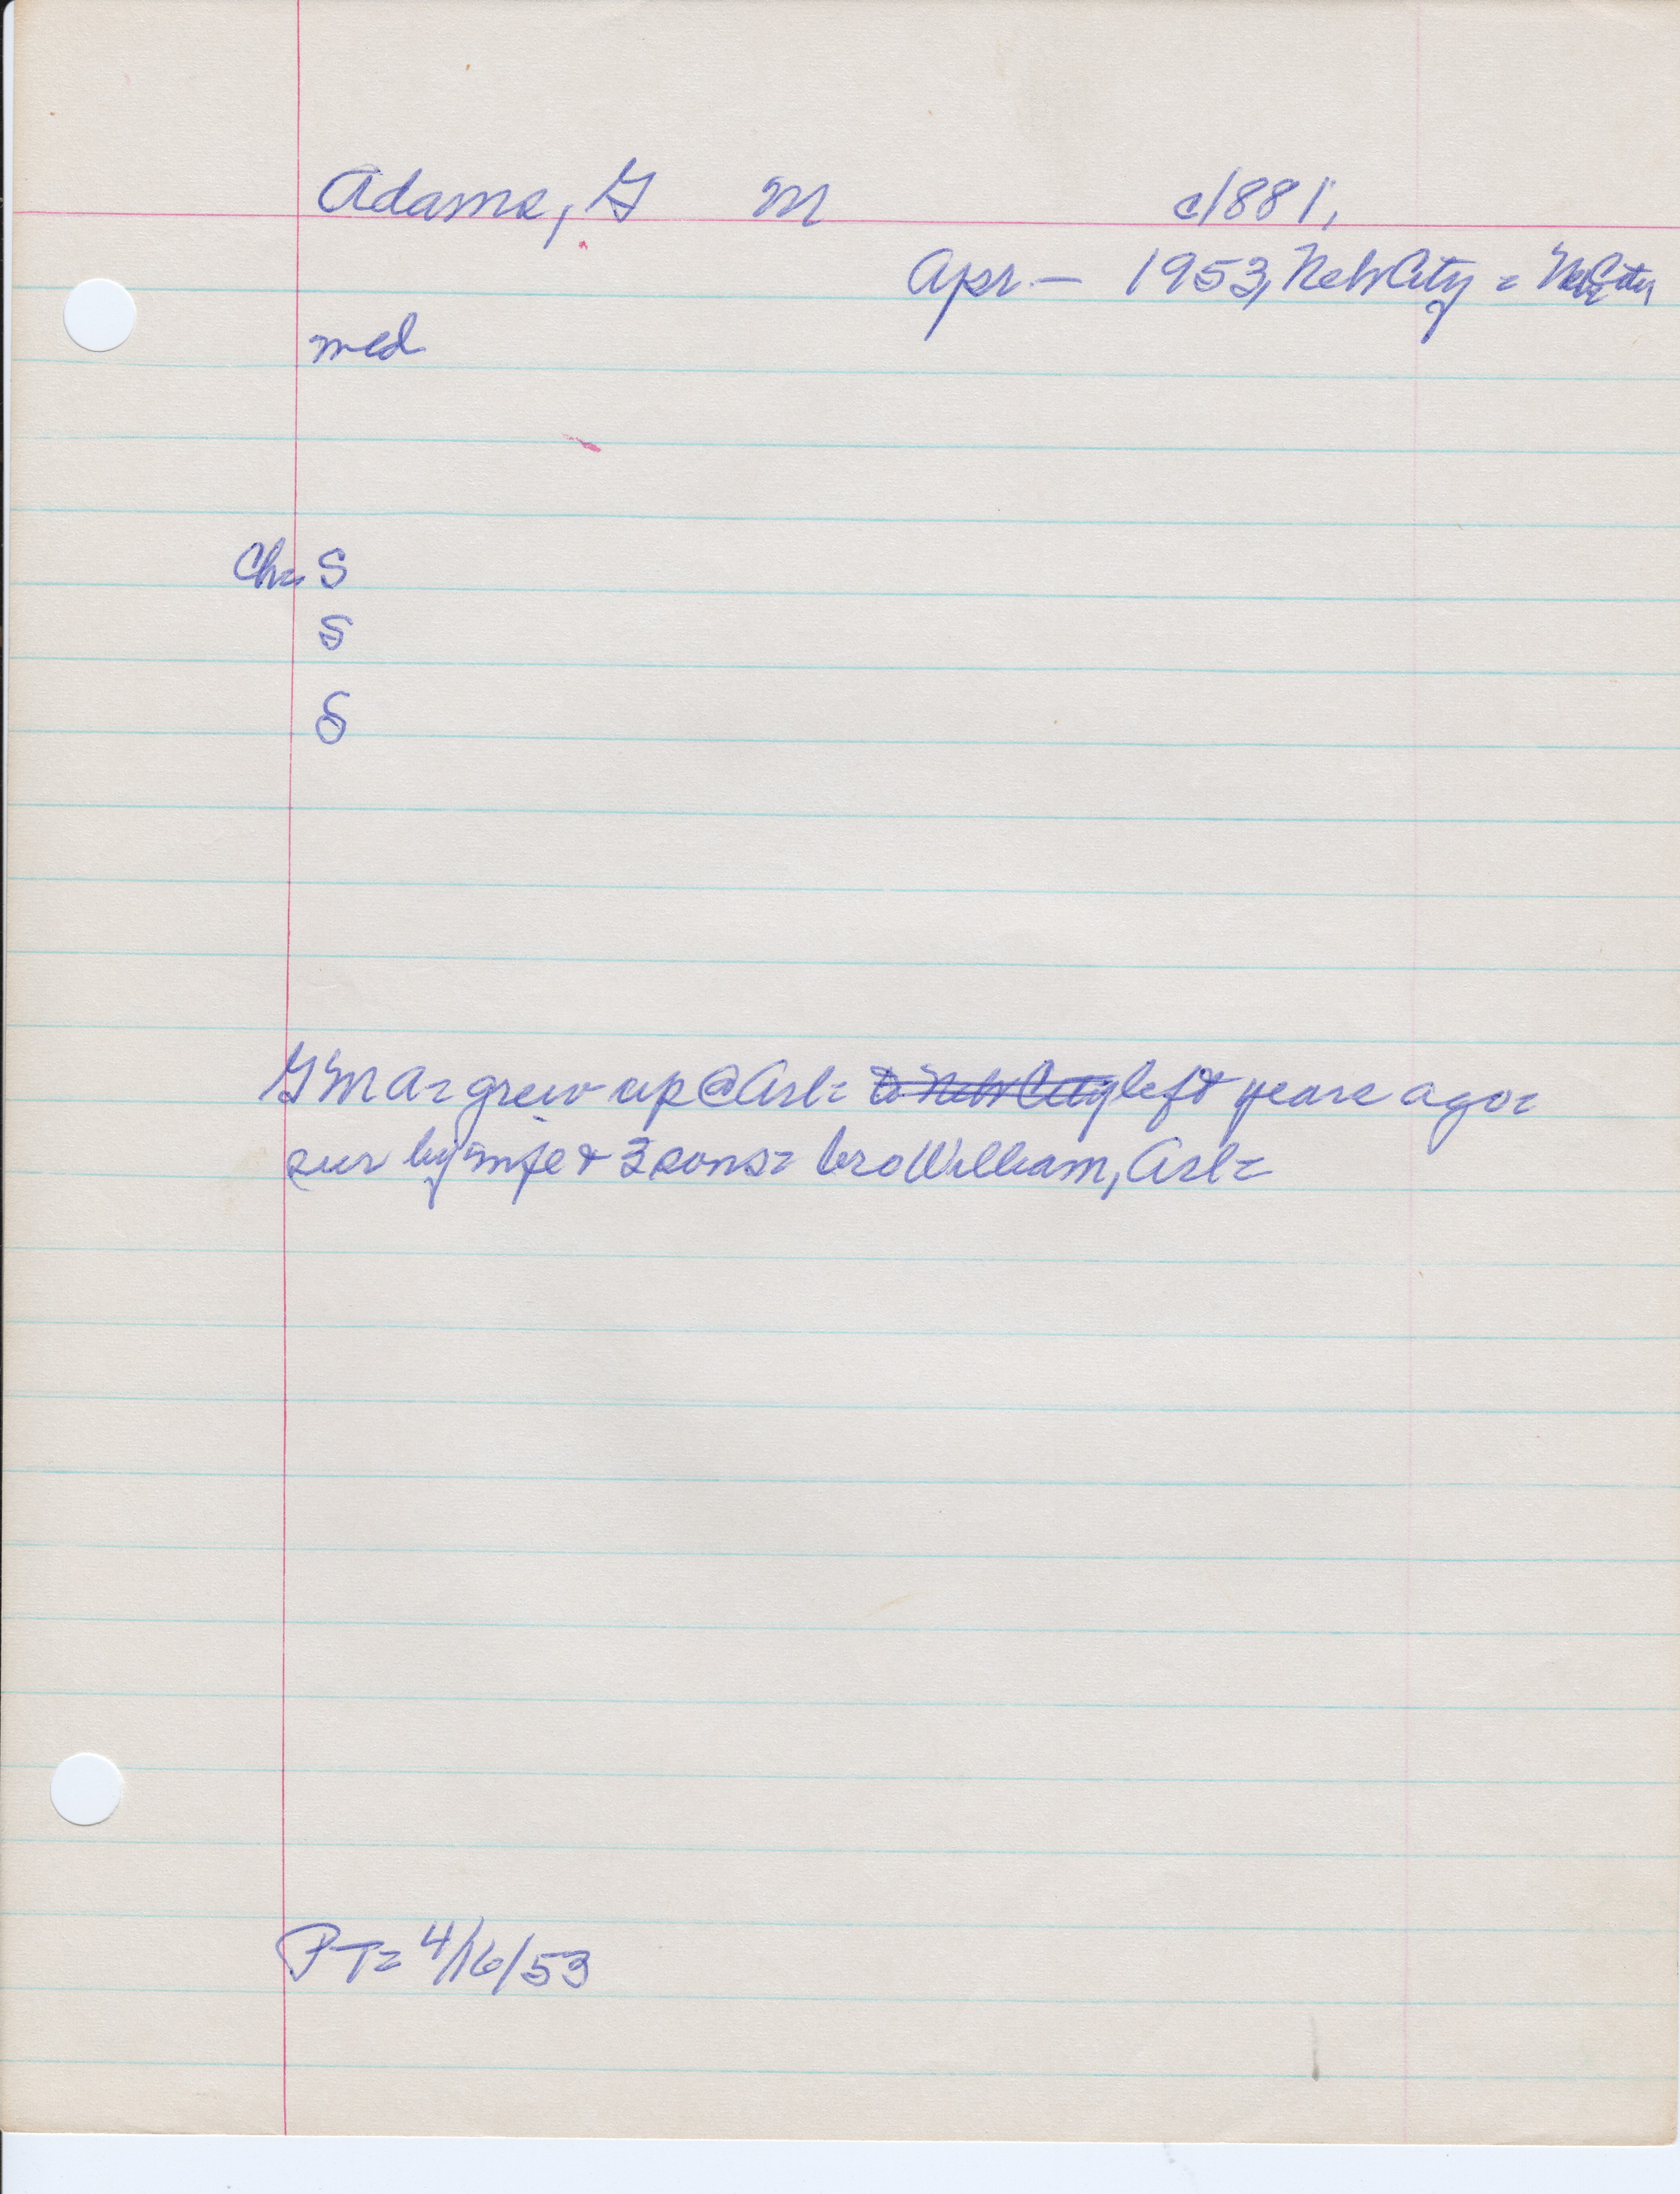 Adams, G M c1881,
Apr — 1953, NebrCity = NebrCity
med
Ch= S
S
S
GMA= grew up @ Arl= to Nebr City left years ago=
sur by wife & 3 sons= bro William, Arl=
PT= 4/16/53